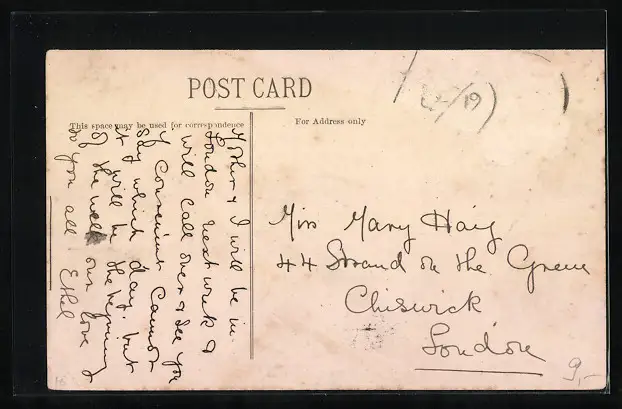 POST CARD
This space may be used for correspondence
For Address only
Mother & I will be in
London next week &
will call over & see you
if convenient Cannot
say which day, but
it will be the beginning
of the week our love
to you all Ethel
Miss Mary Haig
44 Strand on the Green
Chiswick
London
/19)
9,-